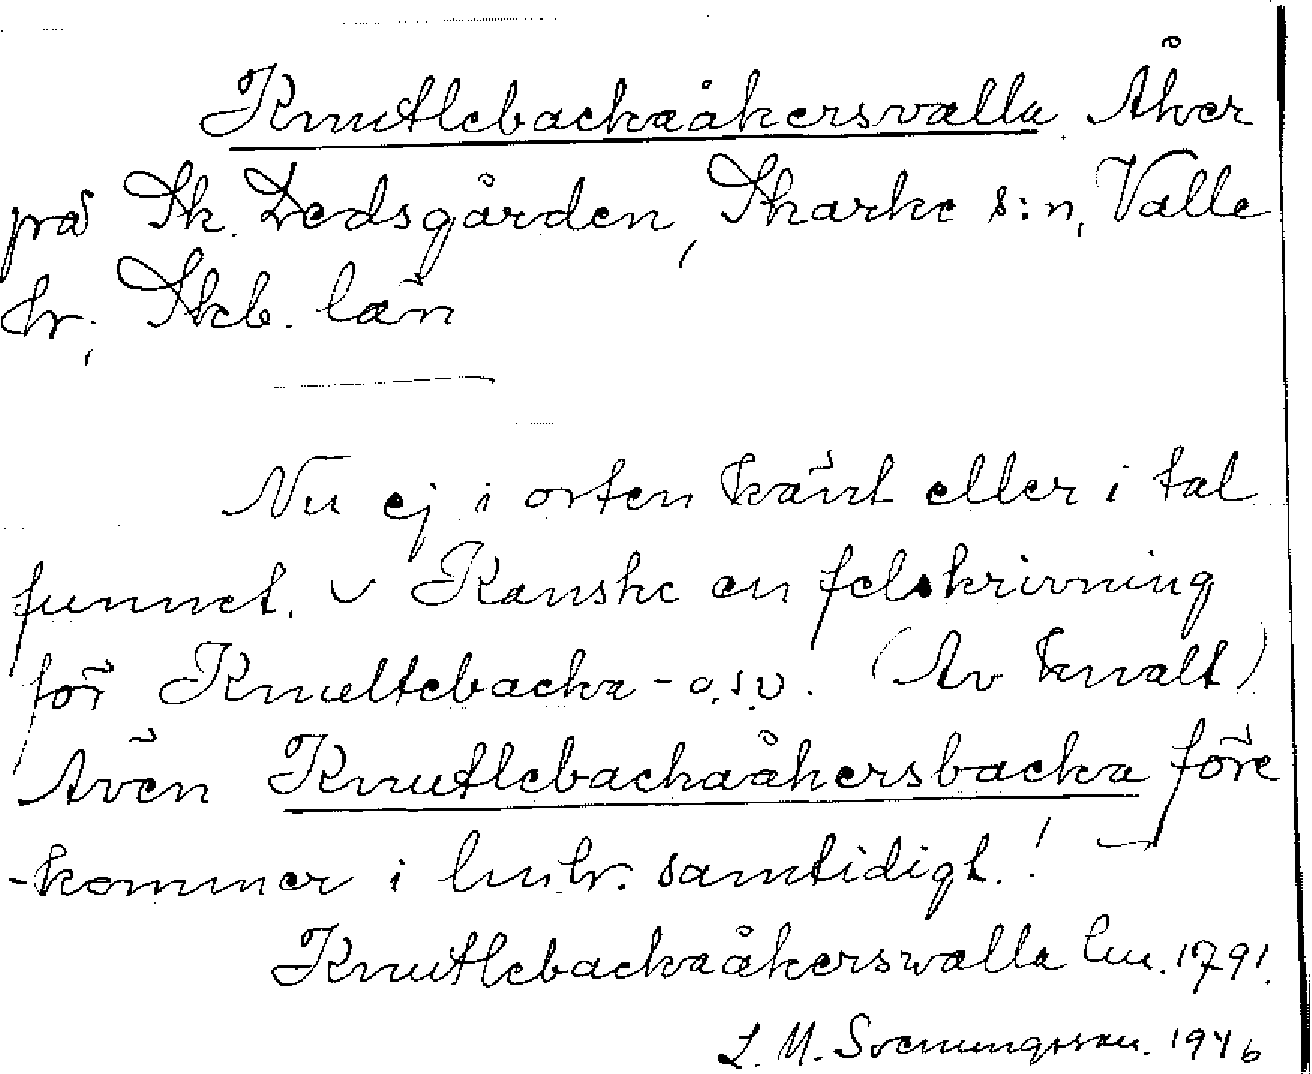 Knutlebackaåkersvalla. Åker
på Sk. Dedsgården, Skarke s:n, Valle
hr, Skb. län
Nu ej i orten känt eller i tal
funnet. v Kanske en felskrivning
för Knultebacka- o.s.v. (Av knalt)
Även Knutlebackaåkersbacka före
-kommer i lm.hr. samtidigt!
Knutlebackaåkerswalla Lm. 1791.
L. M. Svenungsson. 1946